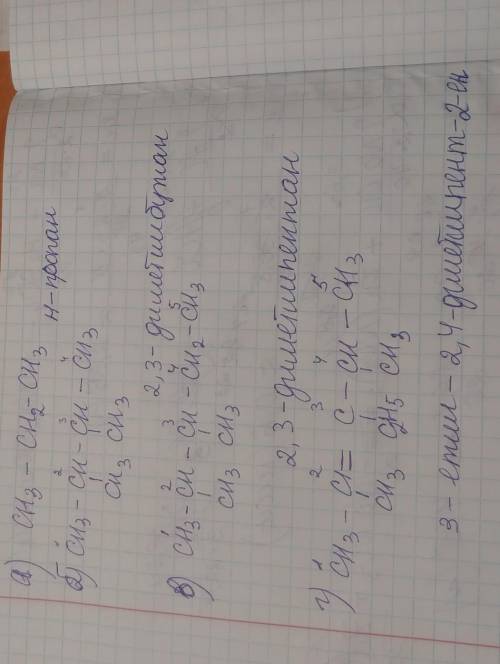 а) CH3 – CH2 – CH3 н-пропан
1 2 3 4
б) CH3 – CH – CH – CH3
CH3 CH3 2,3-диметилбутан
1 2 3 4 5
в) CH3 – CH – CH – CH2 – CH3
CH3 CH3
2,3-диметилпентан
1 2 3 4 5
г) CH3 – C = C – CH – CH3
CH3 C2H5 CH3
3-етил-2,4-диметилпент-2-ен